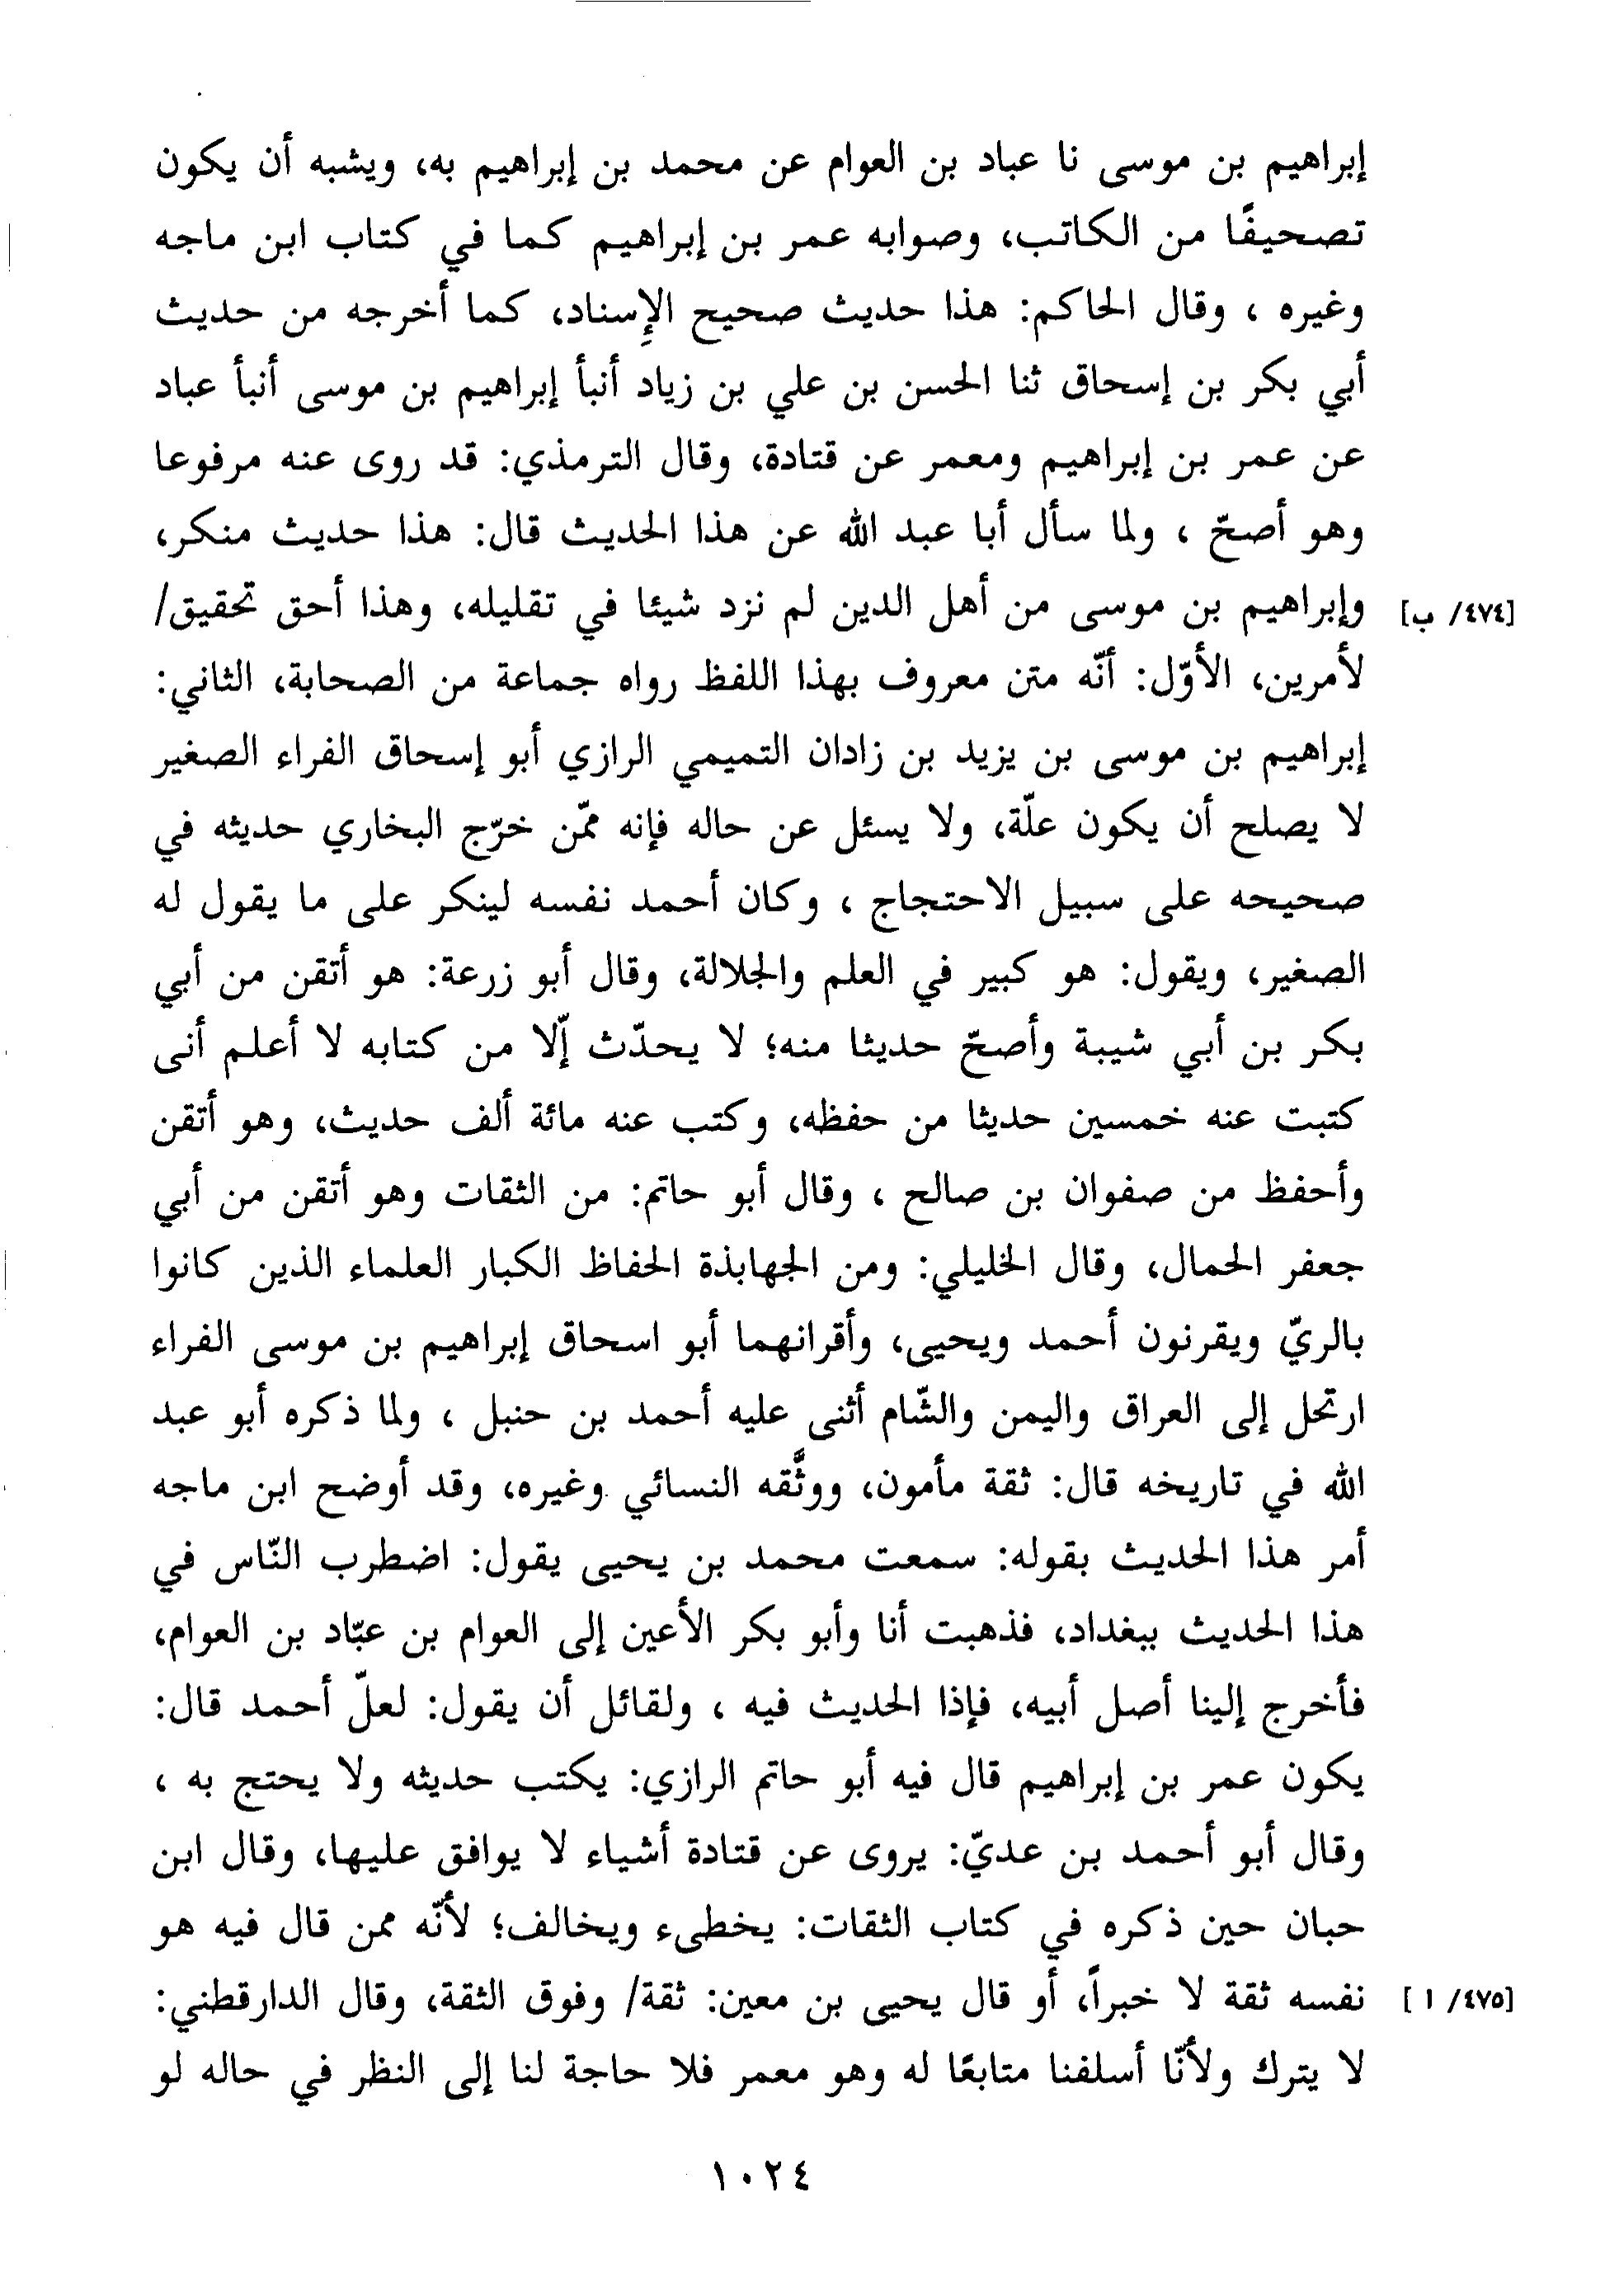 إبراهيم بن موسى نا عباد بن العوام عن محمد بن إبراهيم به، ويشبه أن يكون
تصحيفًا من الكاتب، وصوابه عمر بن إبراهيم كما في كتاب ابن ماجه
وغيره ، وقال الحاكم: هذا حديث صحيح الإِسناد، كما أخرجه من حديث
أبي بكر بن إسحاق ثنا الحسن بن علي بن زياد أنبأ إبراهيم بن موسى أنبأ عباد
عن عمر بن إبراهيم ومعمر عن قتادة، وقال الترمذي: قد روى عنه مرفوعا
وهو أصحّ ، ولما سأل أبا عبد الله عن هذا الحديث قال: هذا حديث منكر،
[٤٧٤/ ب] وإبراهيم بن موسى من أهل الدين لم نزد شيئا في تقليله، وهذا أحق تحقيق/
لأمرين، الأوّل: أنّه متن معروف بهذا اللفظ رواه جماعة من الصحابة، الثاني:
إبراهيم بن موسى بن يزيد بن زادان التميمي الرازي أبو إسحاق الفراء الصغير
لا يصلح أن يكون علّة، ولا يسئل عن حاله فإنه ممّن خرّج البخاري حديثه في
صحيحه على سبيل الاحتجاج ، وكان أحمد نفسه لينكر على ما يقول له
الصغير، ويقول: هو كبير في العلم والجلالة، وقال أبو زرعة: هو أتقن من أبي
بكر بن أبي شيبة وأصحّ حديثا منه؛ لا يحدّث إلّا من كتابه لا أعلم أنى
كتبت عنه خمسين حديثا من حفظه، وكتب عنه مائة ألف حديث، وهو أتقن
وأحفظ من صفوان بن صالح ، وقال أبو حاتم: من الثقات وهو أتقن من أبي
جعفر الحمال، وقال الخليلي: ومن الجهابذة الحفاظ الكبار العلماء الذين كانوا
بالريّ ويقرنون أحمد ويحيى، وأقرانهما أبو اسحاق إبراهيم بن موسى الفراء
ارتحل إلى العراق واليمن والشّام أثنى عليه أحمد بن حنبل ، ولما ذكره أبو عبد
الله في تاريخه قال: ثقة مأمون، ووثَّقه النسائي وغيره، وقد أوضح ابن ماجه
أمر هذا الحديث بقوله: سمعت محمد بن يحيى يقول: اضطرب النّاس في
هذا الحديث ببغداد، فذهبت أنا وأبو بكر الأعين إلى العوام بن عبّاد بن العوام،
فأخرج إلينا أصل أبيه، فإذا الحديث فيه ، ولقائل أن يقول: لعلّ أحمد قال:
يكون عمر بن إبراهيم قال فيه أبو حاتم الرازي: يكتب حديثه ولا يحتج به ،
وقال أبو أحمد بن عديّ: يروى عن قتادة أشياء لا يوافق عليها، وقال ابن
حبان حين ذكره في كتاب الثقات: يخطىء ويخالف؛ لأنّه ممن قال فيه هو
[٤٧٥/ ا ] نفسه ثقة لا خبراً، أو قال يحيى بن معين: ثقة/ وفوق الثقة، وقال الدارقطني:
لا يترك ولأنّا أسلفنا متابعًا له وهو معمر فلا حاجة لنا إلى النظر في حاله لو
١٠٢٤